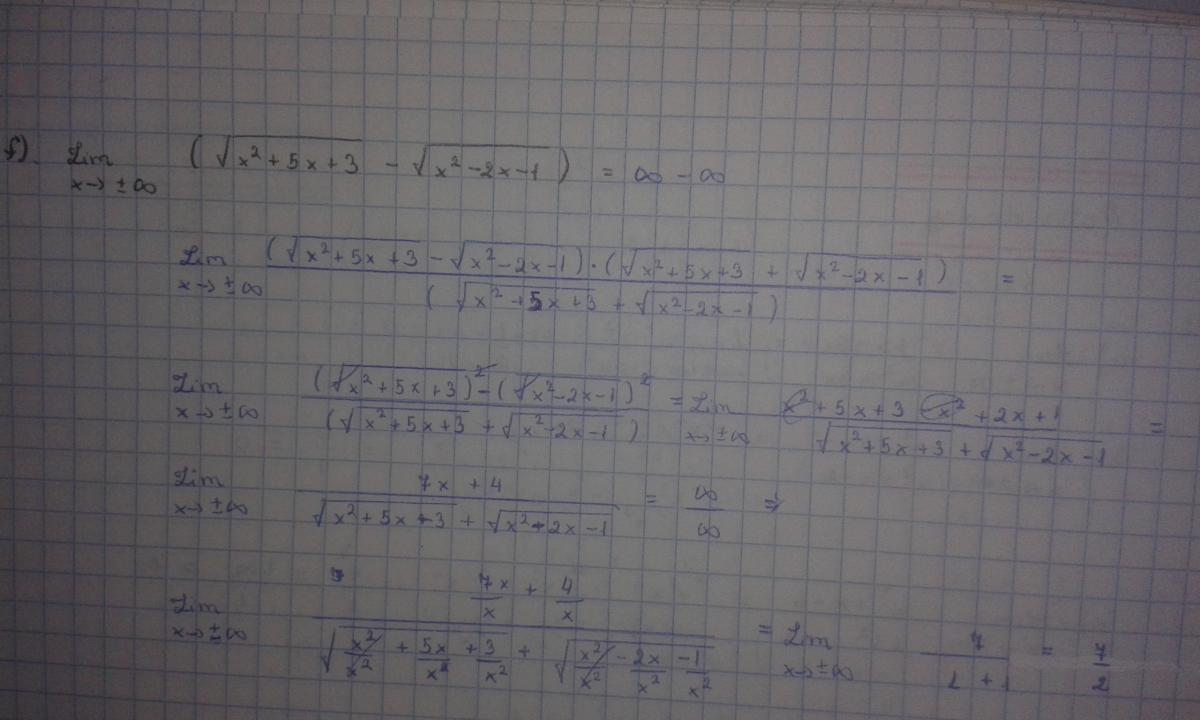 f) Lim x→±∞ (√(x²+5x+3) - √(x²-2x-1)) = ∞ - ∞
Lim x→±∞ ((√(x²+5x+3) - √(x²-2x-1)) · (√(x²+5x+3) + √(x²-2x-1))) / (√(x²+5x+3) + √(x²-2x-1)) =
Lim x→±∞ ((√(x²+5x+3))² - (√(x²-2x-1))²) / (√(x²+5x+3) + √(x²-2x-1)) = Lim x→±∞ (x²+5x+3-x²+2x+1) / (√(x²+5x+3) + √(x²-2x-1)) =
Lim x→±∞ (7x+4) / (√(x²+5x+3) + √(x²-2x-1)) = ∞/∞ ⇒
Lim x→±∞ (7x/x + 4/x) / (√(x²/x² + 5x/x² + 3/x²) + √(x²/x² - 2x/x² - 1/x²)) = Lim x→±∞ 7/(1+1) = 7/2